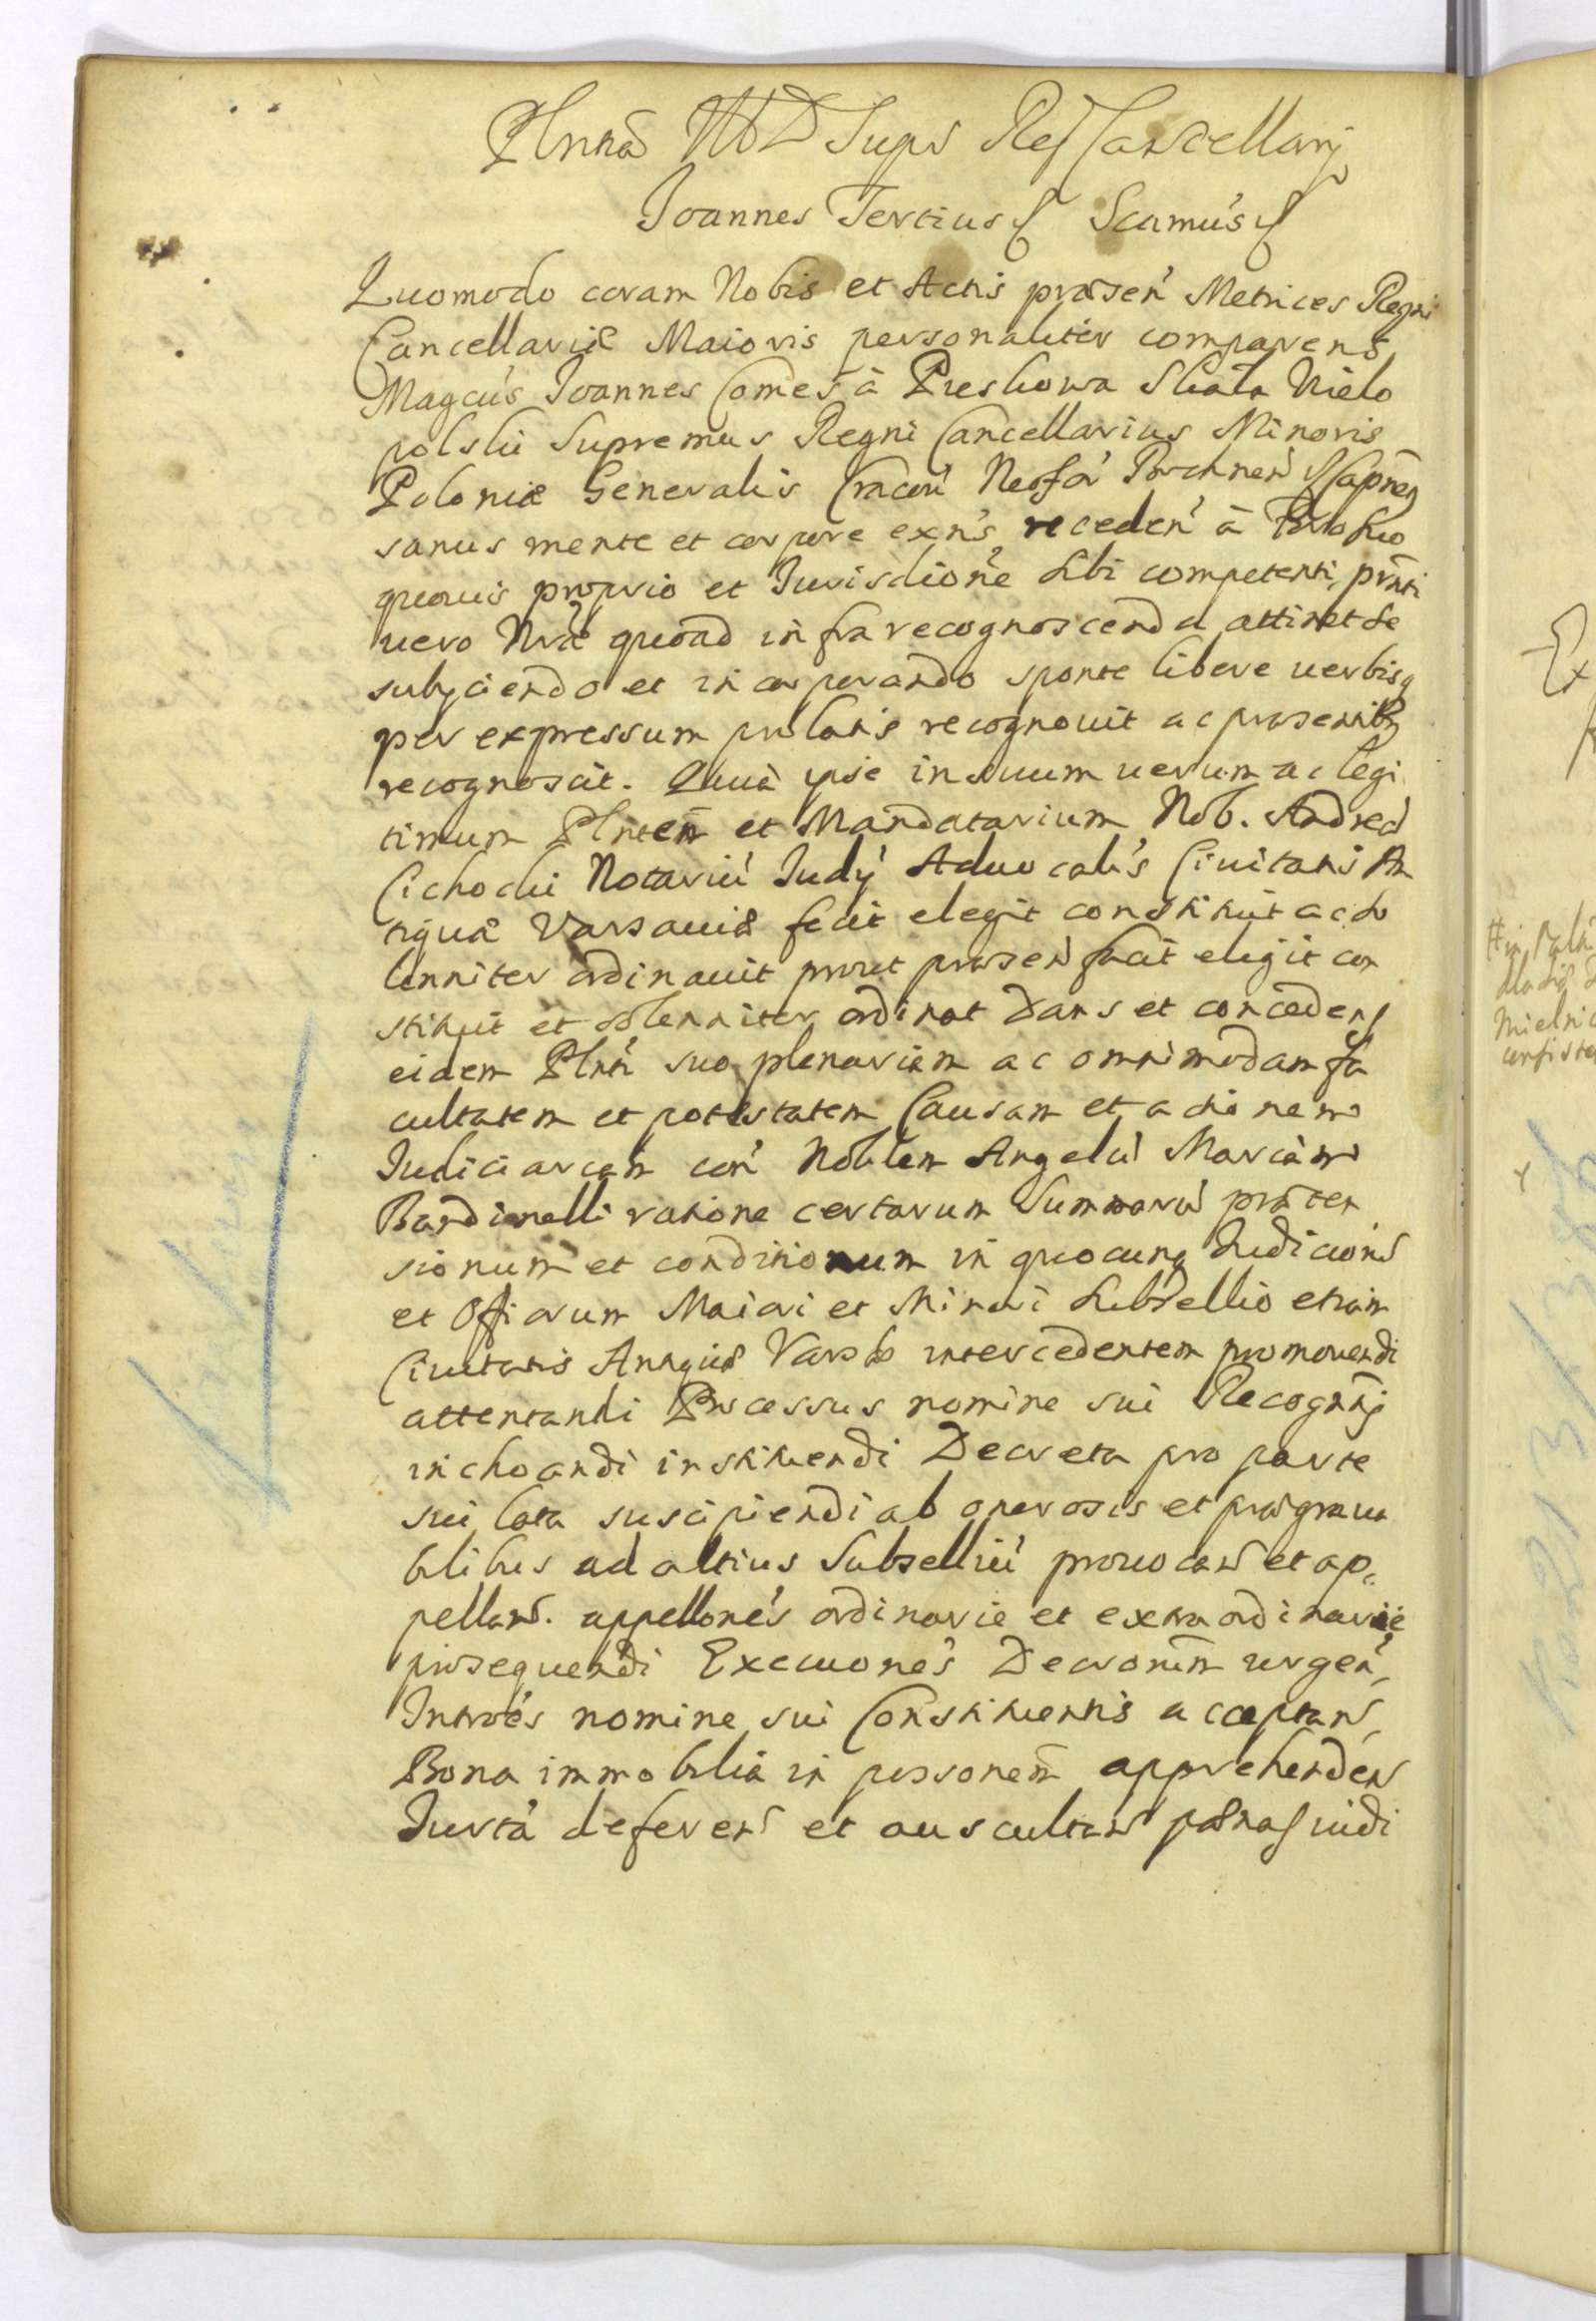 Plnna Mfi D Supr Reg Cancellarij
Joannes Tertius Scimus
Quomodo coram Nobis et Actis præsen Metrices Regni
Cancellariæ Maioris personaliter comparens
Magcus Joannes Comes à Pieskowa Skała Wielo
polski Supremus Regni Cancellarius Minoris
Poloniæ Generalis Cracou Neofor Bochnen Capneus
sanus mente et corpore exns receden à Foro suo
quouis proprio et Jurisdione sibi competenti, prnti
uero Nræ quoad infra recognoscenda attinet se
subijciendo et incorporando sponte libere uerbisq
per expressum prolatis recognouit ac præsentibq
recognoscit. Quia ipse in suum uerum ac legi
timum Plntem et Mandatarium Nob. Andrea
Cichocki Notariu Judij Aduocalis Ciuitatis An
tiquæ Varsauiæ fecit elegit constituit ac so
lenniter ordinauit prout præsen facit elegit con
stituit et solenniter ordinat Dans et concedens
eidem Plnti suo plenariam ac omnimodam fa
cultatem et potestatem Causam et actionem
Judiciariam con Nobilem Angelu Mariam
Bandinelli ratione certarum Summaru præten
sionum et conditionum in quocunq Judiciorũ
et Officiorum Maiori et Minori Subsellio etiam
Ciuitatis Antiquæ Vars intercedentem promouendi
attentandi Processus nomine sui Recognntis
inchoandi instituendi Decreta pro parte
sui lata suscipiendi ab onerosis et prægraua
bilibus ad altius Subselliu prouocan et ap
pellan. appellones ordinarie et extraordinarie
prosequendi Execuones Decretorum urgen,
Intrões nomine sui Constituentis acceptan,
Bona immobilia in possonem apprehenden
Jurta deferen et auscultan pænas uidi